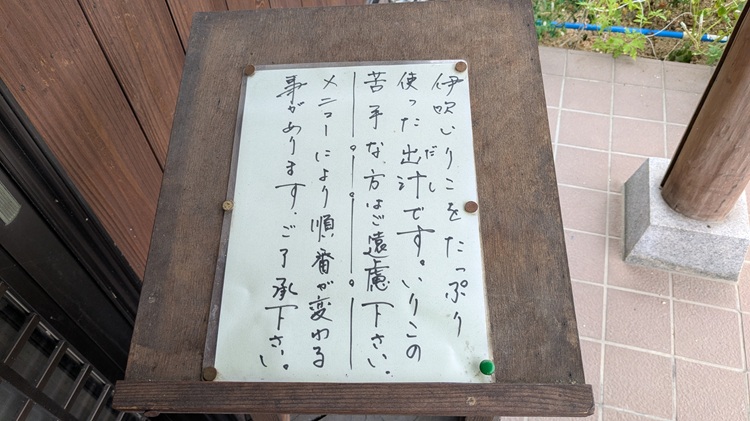 伊吹いりこをたっぷり
使った出汁です。いりこの
だし
苦手な方はご遠慮下さい。
メニューにより順番が変わる
事があります。ご了承下さい。